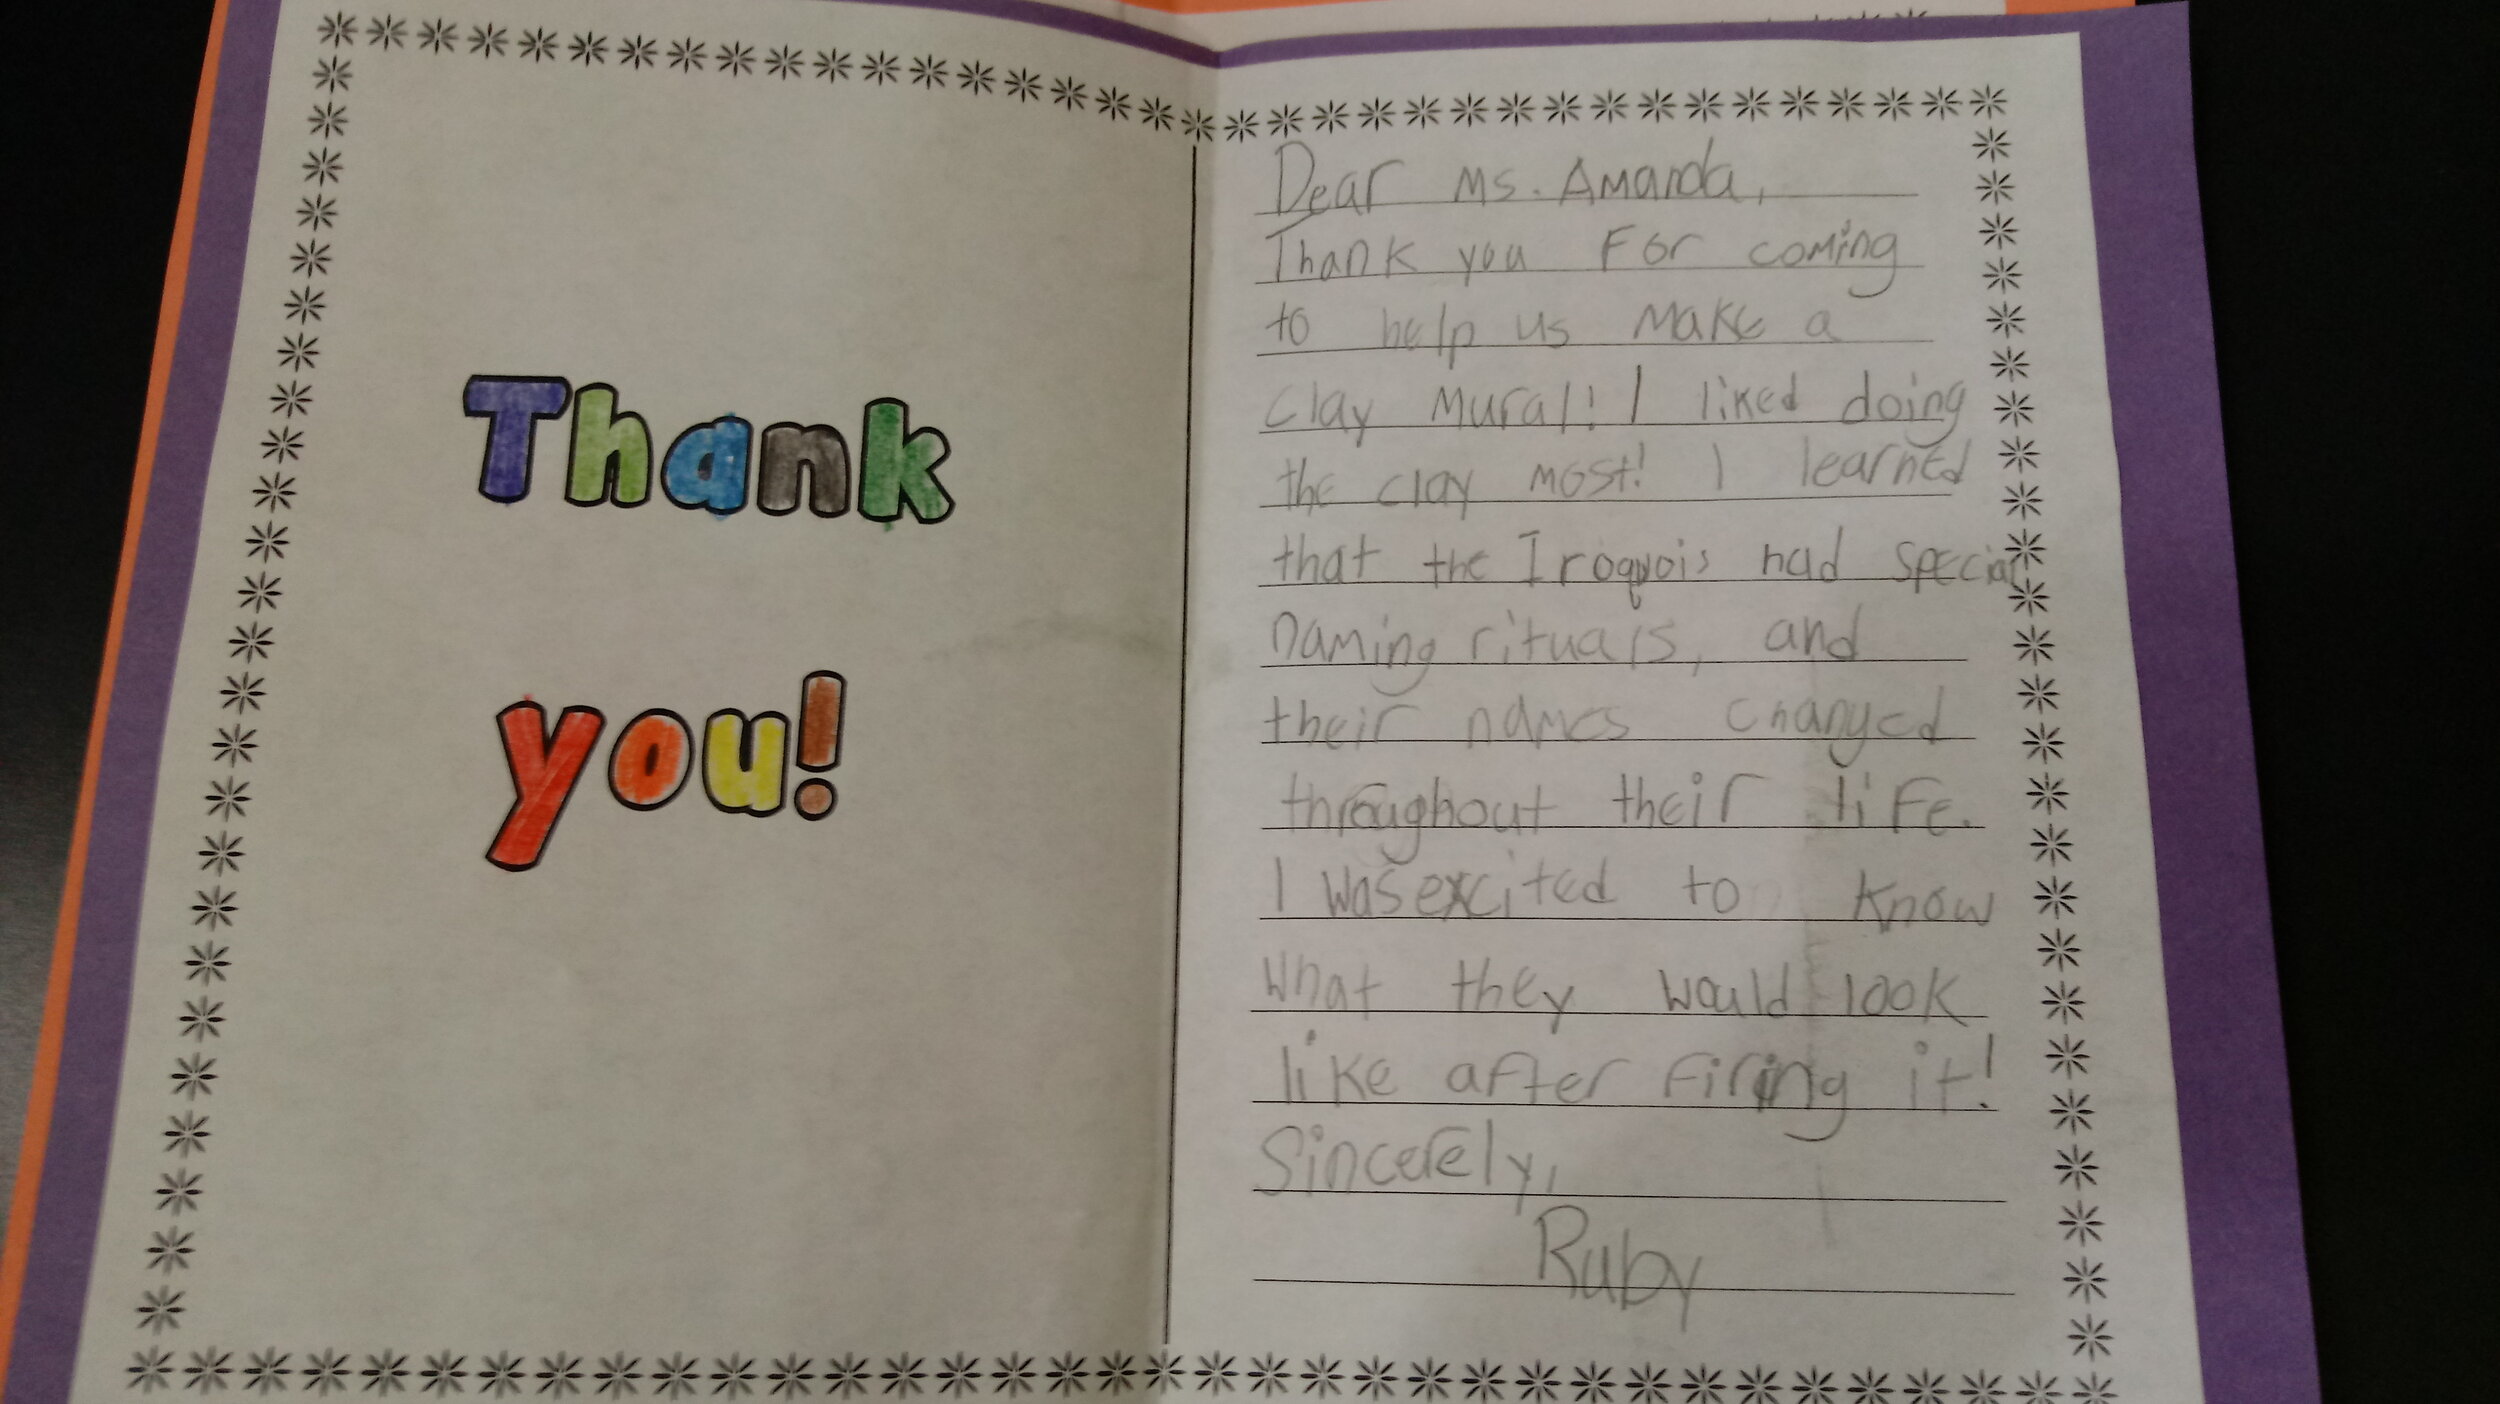 Thank
you!
Dear Ms. Amanda,
Thank you For coming
to help us make a
clay Mural! I liked doing
the clay most! I learned
that the Iroquois had special
naming rituals, and
their names changed
throughout their life.
I was excited to know
what they would look
like after firing it!
Sincerely,
Ruby